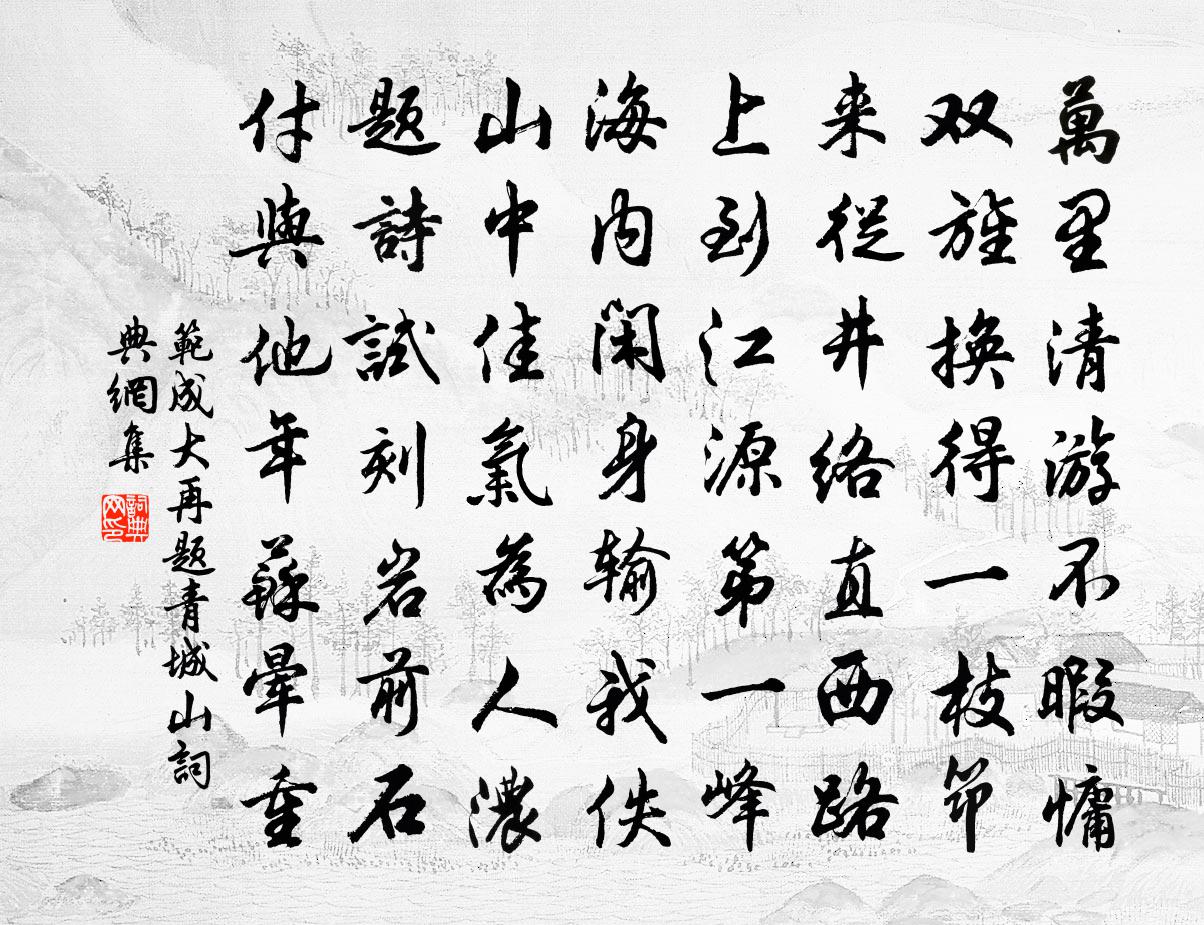 萬里清游不暇慵
双旌換得一枝筇
来從井絡直西路
上到江源第一峰
海内閑身输我佚
山中佳氣為人濃
题詩試刻岩前石
付與他年蘚暈重
範成大再题青城山詞
典網集
詞典
网印